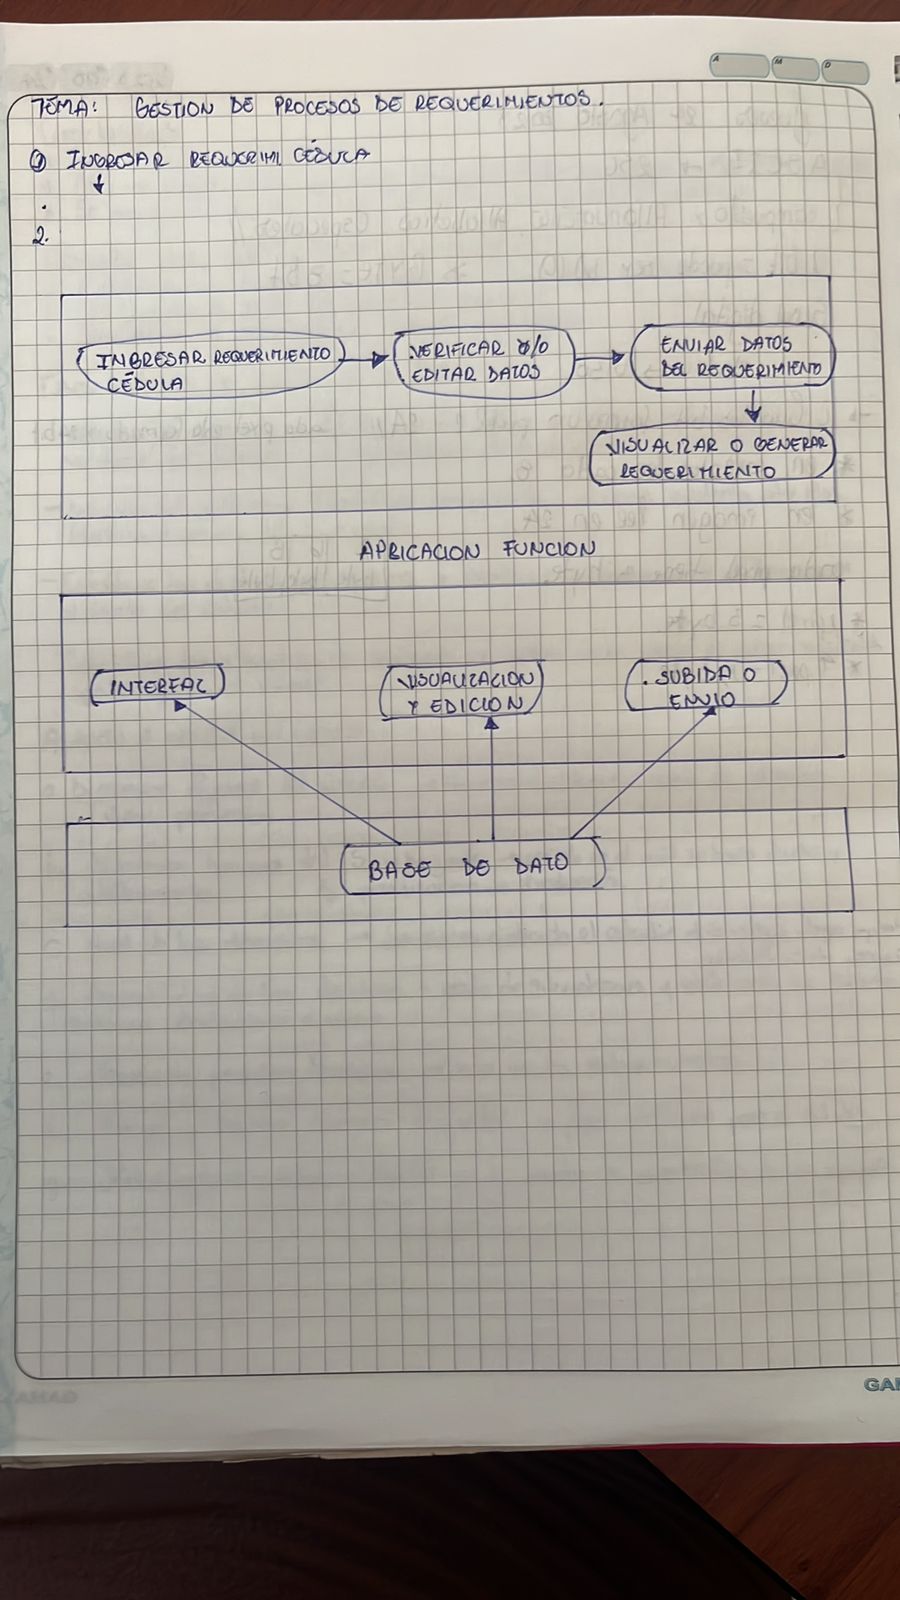 A M D
TEMA: GESTION DE PROCESOS DE REQUERIMIENTOS.
① INGRESAR REQUERIMI CÉDULA
.
2.
INGRESAR REQUERIMIENTO
CÉDULA
VERIFICAR Y/O
EDITAR DATOS
ENVIAR DATOS
DEL REQUERIMIENTO
VISUALIZAR O GENERAR
REQUERIMIENTO
APLICACION FUNCION
INTERFAZ
VISUALIZACION
Y EDICION
. SUBIDA O
ENVIO
BASE DE DATO